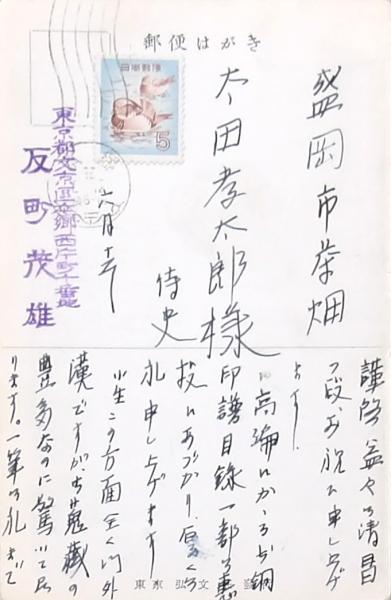 郵便はがき
日本郵便
5
盛岡市茶畑
太田孝太郎様
侍史
六月十六
東京都文京区本郷西片町十番地
反町茂雄
謹啓 益々御清昌
の段、お祝ひ申し上げ
ます。
御高論にかゝるお銅
印譜目録一部御恵
投にあづかり、厚く御
礼申し上げます
小生この方面全く門外
漢ですが、御蒐蔵の
豊多なのに驚いて居
ります。一筆御礼まで
東京 弘文荘